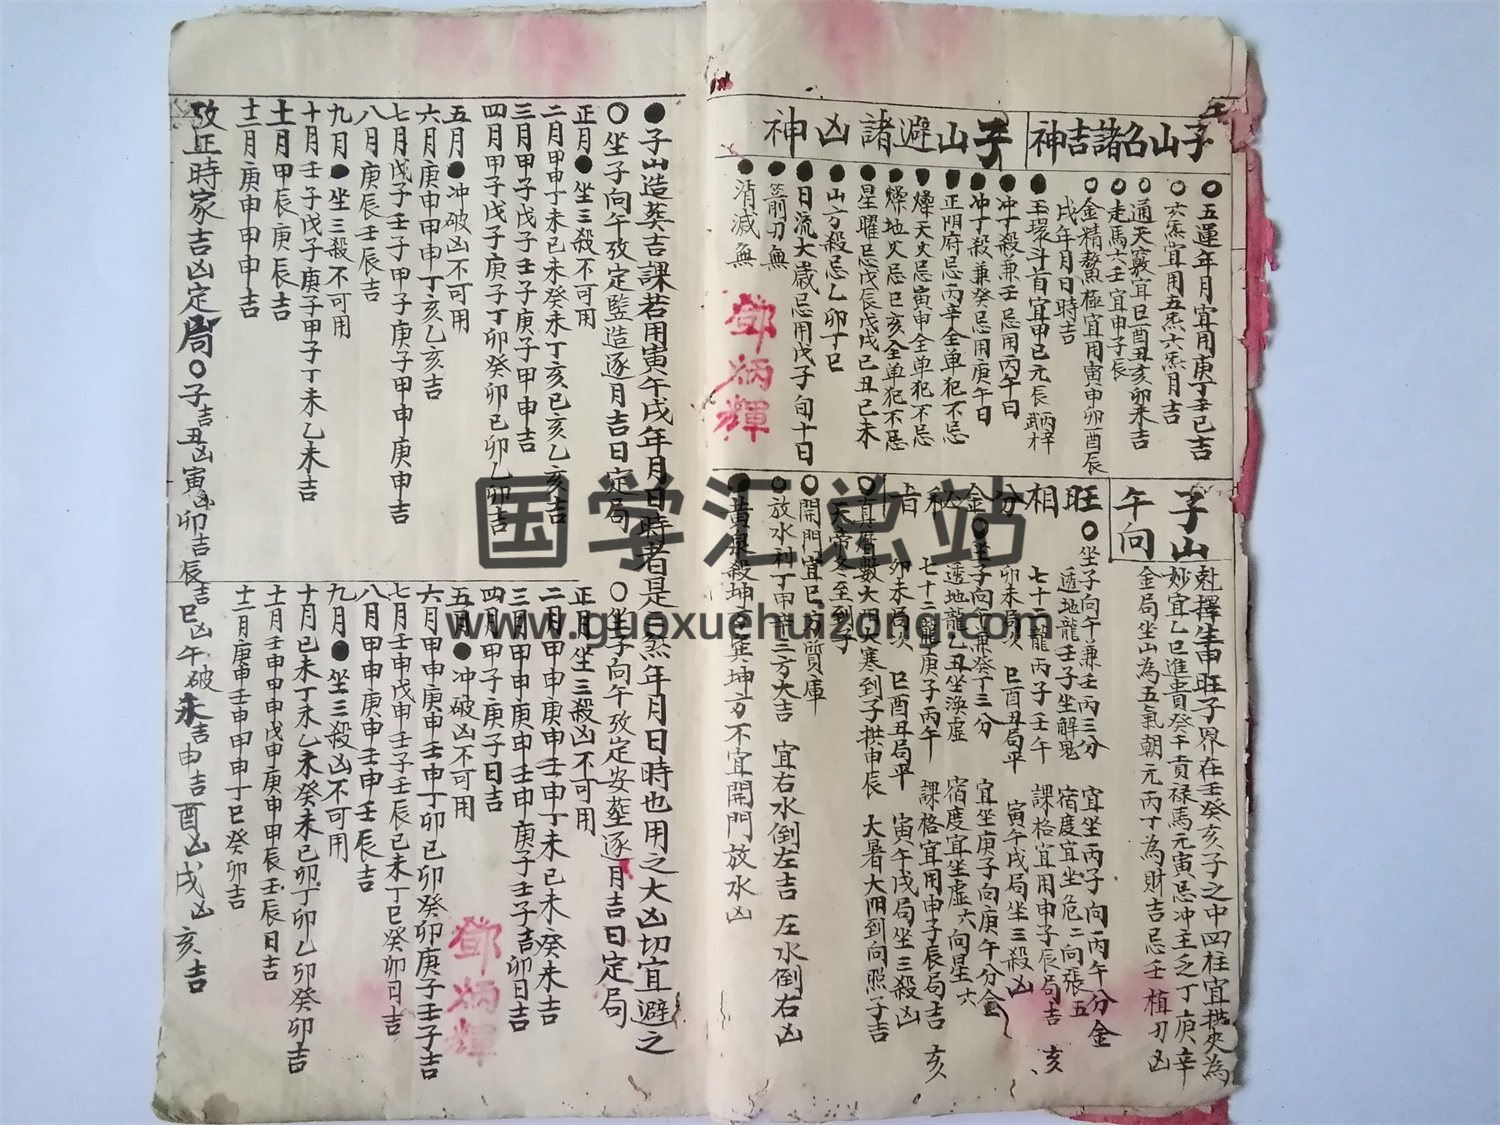 子山名諸吉神
五運年月宜用庚丁壬己吉
六炁宜用五炁六炁月吉
通天竅宜巳酉丑亥卯未吉
走馬六壬宜申子辰
金精鰲極宜用寅申卯酉辰
戌年月日時吉
玉環斗首宜甲己元辰
子山避諸凶神
冲丁殺兼壬忌用丙午日
冲丁殺兼癸忌用庚午日
正阴府忌丙辛全单犯不忌
燥天火忌寅申全单犯不忌
燥地火忌巳亥全单犯不忌
星曜忌戊辰戊戌己丑己未
山方殺忌乙卯丁巳
日流大歲忌用戊子旬十日
箭刃無
消滅無
鄧炳輝
子山午向
尅擇生申旺子界在壬癸亥子之中四柱宜拱夾為
妙宜乙巳進貴癸干貢禄馬元寅忌冲主乏丁庚辛
金局坐山為五氣朝元丙丁為財吉忌壬植刃凶
旺相分金秘旨
坐子向午兼壬丙三分 宜坐丙子向丙午分金
透地龍壬子坐解鬼 宿度宜坐危二向張五
七十二龍丙子壬午 課格宜用申子辰局吉 亥
卯未局次 巳酉丑局平 寅午戌局坐三殺凶
坐子向午兼癸丁三分 宜坐庚子向庚午分金
透地龍乙丑坐渙虚 宿度宜坐虚六向星六
七十二龍庚子丙午 課格宜用申子辰局吉 亥
卯未局次 巳酉丑局平 寅午戌局坐三殺凶
真曆數大阴大寒到子拱申辰 大暑大阴到向照子吉
天帝冬至到子
開門宜巳方質庫
放水利丁甲辛三方大吉 宜右水倒左吉 左水倒右凶
黃泉殺坤方巽坤方不宜開門放水凶
子山造葬吉課若用寅午戌年月日時者是三煞年月日時也用之大凶切宜避之
坐子向午攷定竪造逐月吉日定局
正月 坐三殺不可用
二月甲申丁未己未癸未丁亥己亥乙亥吉
三月甲子戊子壬子庚子甲申吉
四月甲子戊子庚子丁卯癸卯己卯乙卯吉
五月 冲破凶不可用
六月庚申甲申丁亥乙亥吉
七月戊子壬子甲子庚子甲申庚申吉
八月庚辰壬辰吉
九月 坐三殺不可用
十月壬子戊子庚子甲子丁未乙未吉
十一月甲辰庚辰吉
十二月庚申甲申吉
坐子向午攷定安葬逐月吉日定局
正月坐三殺凶不可用
二月甲申庚申壬申丁未己未癸未吉
三月甲申庚申壬申庚子壬子吉卯日吉
四月甲子庚子日吉
五月 冲破凶不可用
六月甲申庚申壬申丁卯己卯癸卯庚子壬子吉
七月壬申戊申壬子壬辰己未丁巳癸卯日吉
八月甲申庚申壬申壬辰吉
九月 坐三殺凶不可用
十月己未丁未乙未癸未己卯丁卯乙卯癸卯吉
十一月壬申甲申戊申庚申甲辰壬辰日吉
十二月庚申壬申甲申丁巳癸卯吉
鄧炳輝
攷正時家吉凶定局 子吉丑凶寅凶卯吉辰吉巳凶午破未吉申吉酉凶戌凶亥吉
国学汇总站
www.guoxuehuizong.com